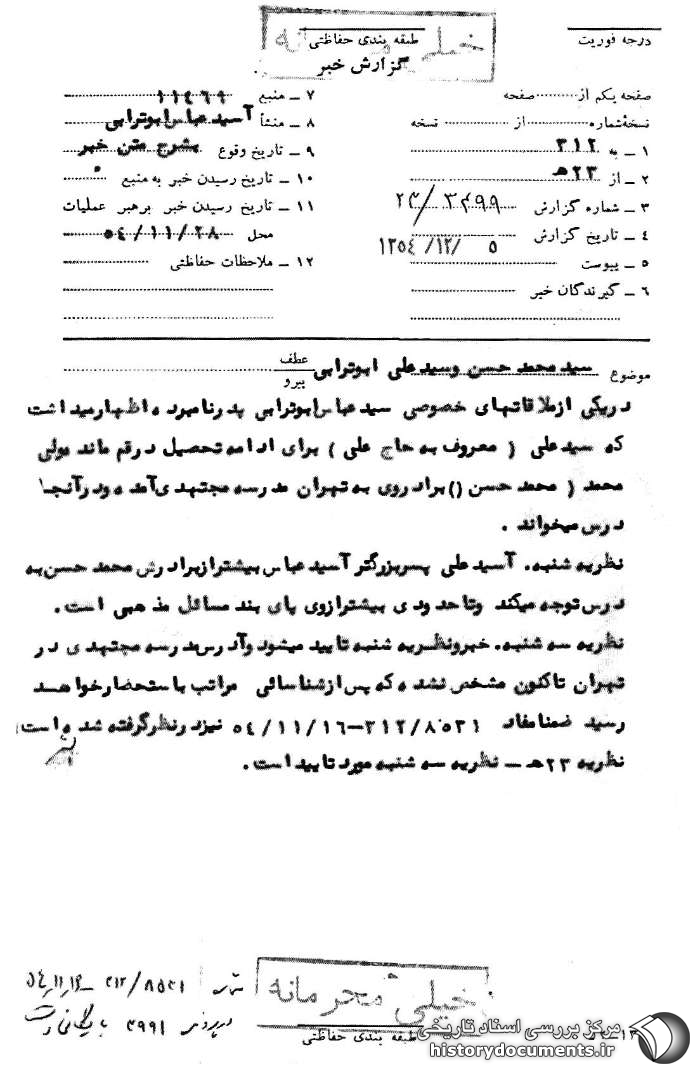 خیلی محرمانه
درجه فوریت
طبقه بندی حفاظتی
گزارش خبر
صفحه یکم از صفحه
نسخهٔ شماره از نسخه
۱ ـ به ۳۱۲
۲ ـ از ۲۳هـ
۳ ـ شماره گزارش
۴ ـ تاریخ گزارش ۵ /۱۲/ ۱۳۵۴
۵ ـ پیوست
۶ ـ گیرندگان خبر
۷ ـ منبع ۱۱۴۶۹
۸ ـ منشأ آسید عباس ابوترابی
۹ ـ تاریخ وقوع بشرح متن خبر
۱۰ ـ تاریخ رسیدن خبر به منبع
۱۱ ـ تاریخ رسیدن خبر برهبر عملیات
محل ۵۴/۱۱/۲۸
۱۲ ـ ملاحظات حفاظتی
موضوع سید محمد حسن وسید علی ابوترابی
عطف
پیرو
دریکی ازملاقاتهای خصوصی سید عباس ابوترابی پدرنامبرده اظهارمیداشت
که سید علی ( معروف به حاج علی ) برای ادامه تحصیل درقم ماند ولی
محمد ( محمد حسن ()برادروی به تهران مدرسه مجتهدی آمده ودرآنجا
درس میخواند .
نظریه شنبه. آسید علی پسربزرگتر آسید عباس بیشترازبرادرش محمد حسن به
درس توجه میکند وتاحدودی بیشترازوی پای بند مسائل مذهبی است .
نظریه سه شنبه. خبرونظریه شنبه تایید میشود وآدرس مدرسه مجتهدی در
تهران تاکنون مشخص نشده که پس ازشناسائی مراتب باستحضارخواهد
رسید ضمنامفاد ۳۱۲/۸۵۳۱-۵۴/۱۱/۱۶ نیزدرنظرگرفته شده است
نظریه ۲۳هـ ـ نظریه سه شنبه مورد تاییداست .
خیلی محرمانه
طبقه بندی حفاظتی
مرکز بررسی اسناد تاریخی
historydocuments.ir